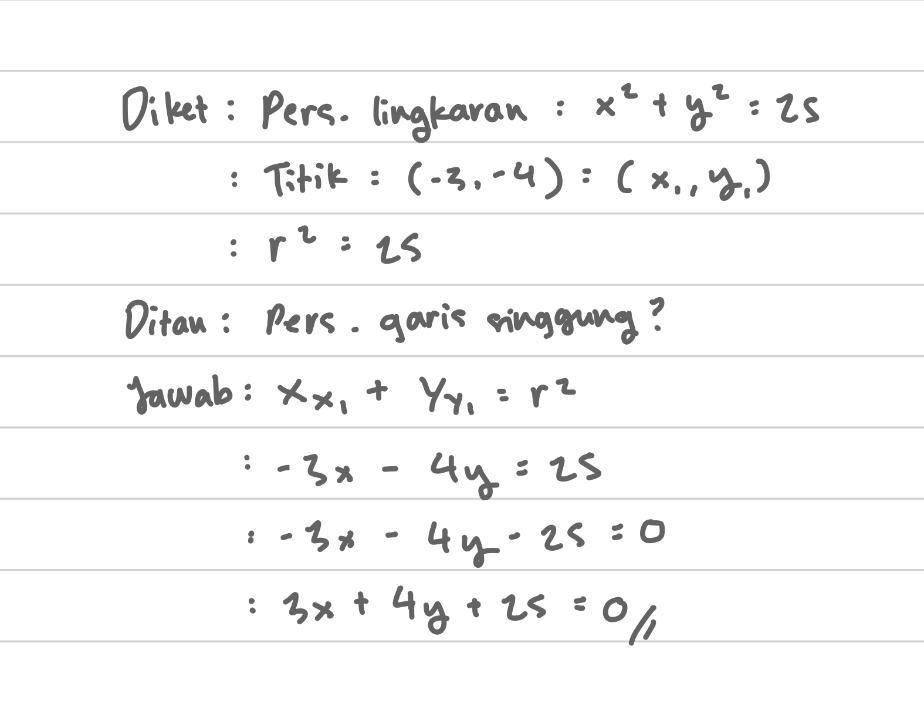 Diket : Pers. lingkaran : x² + y² = 25
: Titik : (-3, -4) = (x₁, y₁)
: r² = 25
Ditan : Pers. garis singgung?
Jawab : Xx₁ + Yy₁ = r²
: -3x - 4y = 25
: -3x - 4y - 25 = 0
: 3x + 4y + 25 = 0//